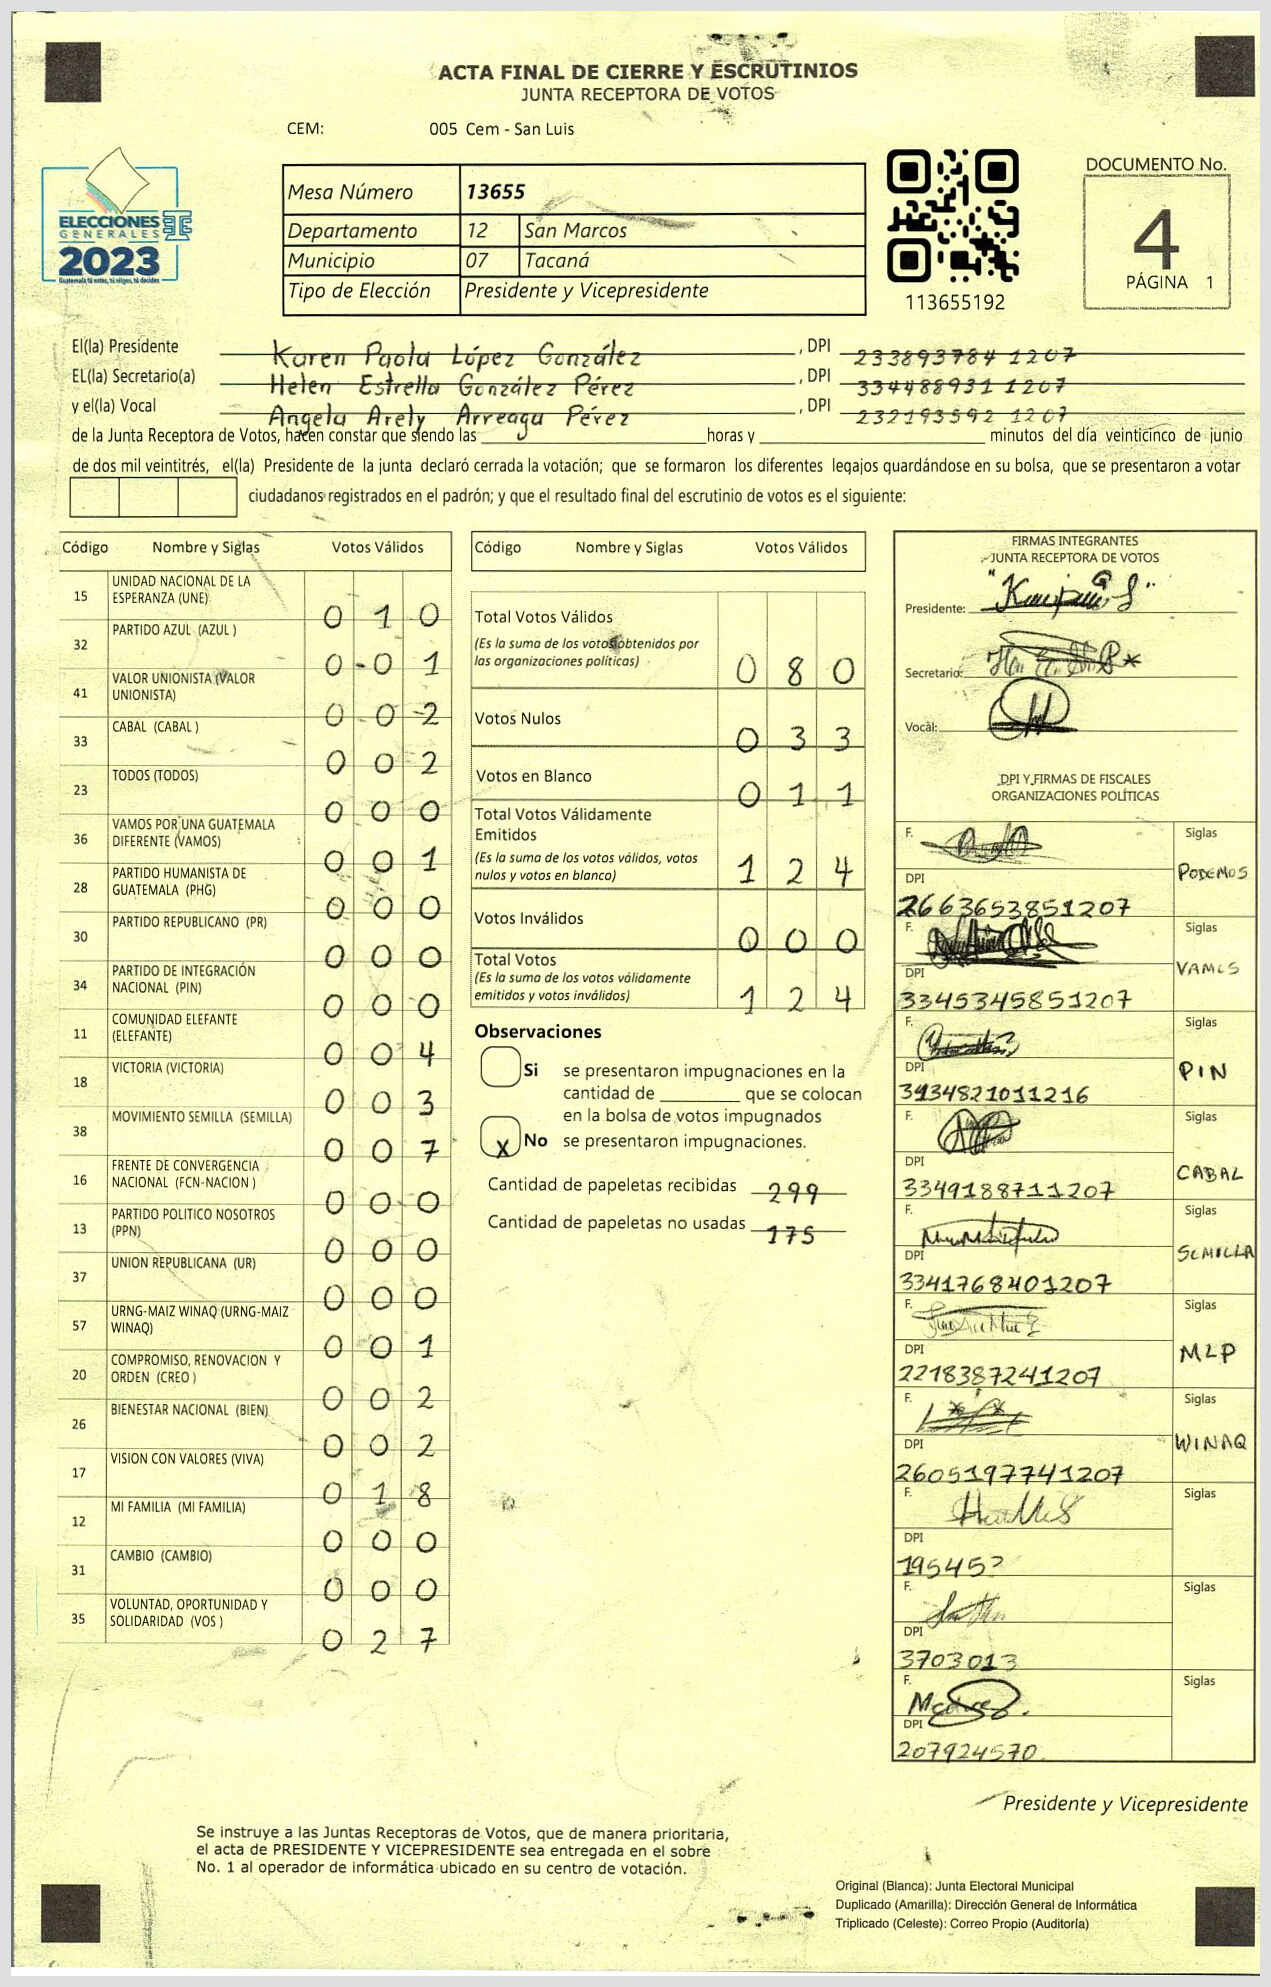 ACTA FINAL DE CIERRE Y ESCRUTINIOS
JUNTA RECEPTORA DE VOTOS
CEM: 005 Cem - San Luis
ELECCIONES
GENERALES
2023
Guatemala tú votas, tú eliges, tú decides
Mesa Número 13655
Departamento 12 San Marcos
Municipio 07 Tacaná
Tipo de Elección Presidente y Vicepresidente
113655192
DOCUMENTO No.
4
PÁGINA 1
El(la) Presidente Karen Paola López González , DPI 233893784 1207
EL(la) Secretario(a) Helen Estrella González Pérez , DPI 334488931 1207
y el(la) Vocal Angela Arely Arreaga Pérez , DPI 232193592 1207
de la Junta Receptora de Votos, hacen constar que siendo las horas y minutos del día veinticinco de junio
de dos mil veintitrés, el(la) Presidente de la junta declaró cerrada la votación; que se formaron los diferentes legajos guardándose en su bolsa, que se presentaron a votar
ciudadanos registrados en el padrón; y que el resultado final del escrutinio de votos es el siguiente:
Código Nombre y Siglas Votos Válidos
15 UNIDAD NACIONAL DE LA ESPERANZA (UNE) 0 1 0
32 PARTIDO AZUL (AZUL ) 0-01
41 VALOR UNIONISTA (VALOR UNIONISTA) 0-0-2
33 CABAL (CABAL ) 0 0 2
23 TODOS (TODOS) 0 0 0
36 VAMOS POR UNA GUATEMALA DIFERENTE (VAMOS) 0 0 1
28 PARTIDO HUMANISTA DE GUATEMALA (PHG) 0 0 0
30 PARTIDO REPUBLICANO (PR) 0 0 0
34 PARTIDO DE INTEGRACIÓN NACIONAL (PIN) 0 0 0
11 COMUNIDAD ELEFANTE (ELEFANTE) 0 0 4
18 VICTORIA (VICTORIA) 0 0 3
38 MOVIMIENTO SEMILLA (SEMILLA) 0 0 7
16 FRENTE DE CONVERGENCIA NACIONAL (FCN-NACION ) 0 0 0
13 PARTIDO POLITICO NOSOTROS (PPN) 0 0 0
37 UNION REPUBLICANA (UR) 0 0 0
57 URNG-MAIZ WINAQ (URNG-MAIZ WINAQ) 0 0 1
20 COMPROMISO, RENOVACION Y ORDEN (CREO ) 0 0 2
26 BIENESTAR NACIONAL (BIEN) 0 0 2
17 VISION CON VALORES (VIVA) 0 1 8
12 MI FAMILIA (MI FAMILIA) 0 0 0
31 CAMBIO (CAMBIO) 0 0 0
35 VOLUNTAD, OPORTUNIDAD Y SOLIDARIDAD (VOS ) 0 2 7
Código Nombre y Siglas Votos Válidos
Total Votos Válidos
(Es la suma de los votos obtenidos por
las organizaciones políticas) 0 8 0
Votos Nulos 0 3 3
Votos en Blanco 0 1 1
Total Votos Válidamente
Emitidos
(Es la suma de los votos válidos, votos
nulos y votos en blanco) 1 2 4
Votos Inválidos 0 0 0
Total Votos
(Es la suma de los votos válidamente
emitidos y votos inválidos) 1 2 4
Observaciones
Si se presentaron impugnaciones en la
cantidad de que se colocan
en la bolsa de votos impugnados
X No se presentaron impugnaciones.
Cantidad de papeletas recibidas 299
Cantidad de papeletas no usadas 175
FIRMAS INTEGRANTES
JUNTA RECEPTORA DE VOTOS
Presidente:
Secretario:
Vocal:
DPI Y FIRMAS DE FISCALES
ORGANIZACIONES POLÍTICAS
F. Siglas
DPI PODEMOS
2663653851207
F. Siglas
DPI VAMOS
3345345851207
F. Siglas
DPI PIN
3434821011216
F. Siglas
DPI CABAL
3349188711207
F. Siglas
DPI SEMILLA
3341768401207
F. Siglas
DPI MLP
2218387241207
F. Siglas
DPI WINAQ
2605197741207
F. Siglas
DPI
F. Siglas
DPI
3703013
F. Siglas
DPI
207924570
Presidente y Vicepresidente
Se instruye a las Juntas Receptoras de Votos, que de manera prioritaria,
el acta de PRESIDENTE Y VICEPRESIDENTE sea entregada en el sobre
No. 1 al operador de informática ubicado en su centro de votación.
Original (Blanca): Junta Electoral Municipal
Duplicado (Amarilla): Dirección General de Informática
Triplicado (Celeste): Correo Propio (Auditoría)